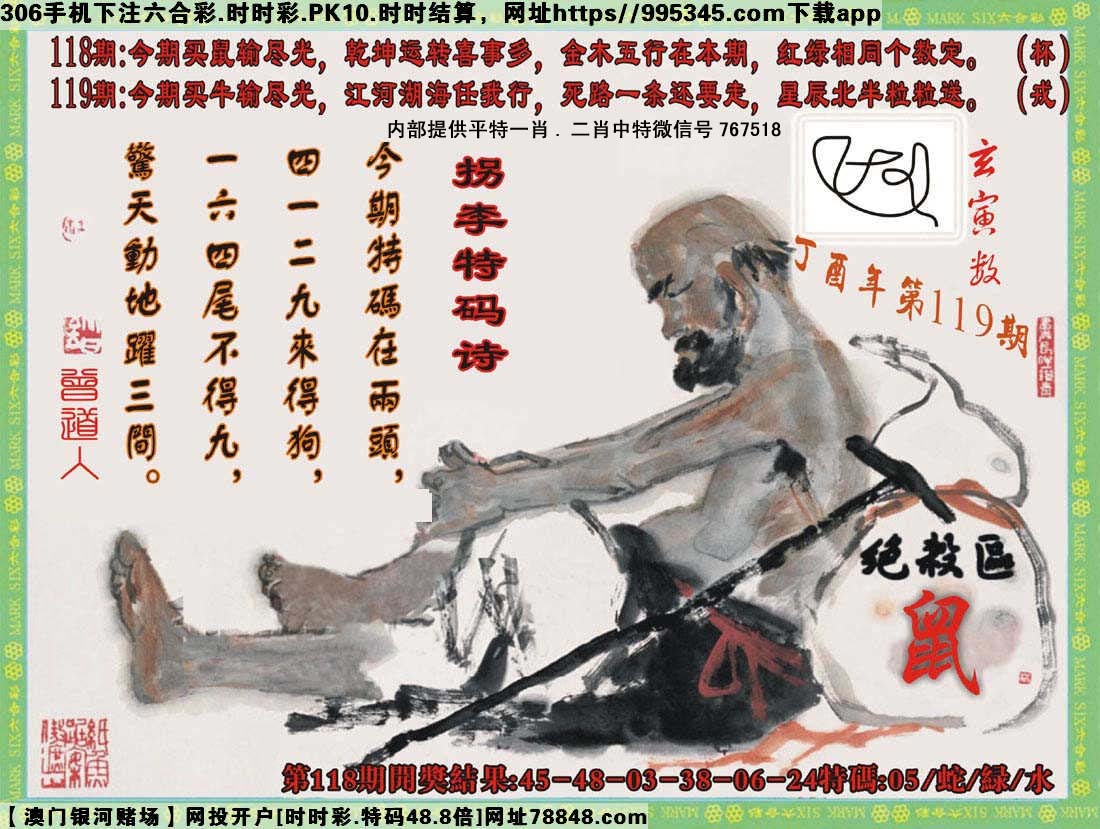 306手机下注六合彩.时时彩.PK10.时时结算，网址https//995345.com下载app
MARK SIX六合彩
118期:今期买鼠输尽光，乾坤运转喜事多，金木五行在本期，红绿相同个数定。（杯）
119期:今期买牛输尽光，江河湖海任我行，死路一条还要走，星辰北半粒粒送。（戎）
内部提供平特一肖．二肖中特微信号 767518
玄寅数
丁酉年第119期
拐李特码诗
今期特碼在兩頭，
四一二九來得狗，
一六四尾不得九，
驚天動地躍三間。
曾道人
绝殺區
鼠
第118期開獎結果:45-48-03-38-06-24特碼:05/蛇/緑/水
【澳门银河赌场】网投开户[时时彩.特码48.8倍]网址78848.com